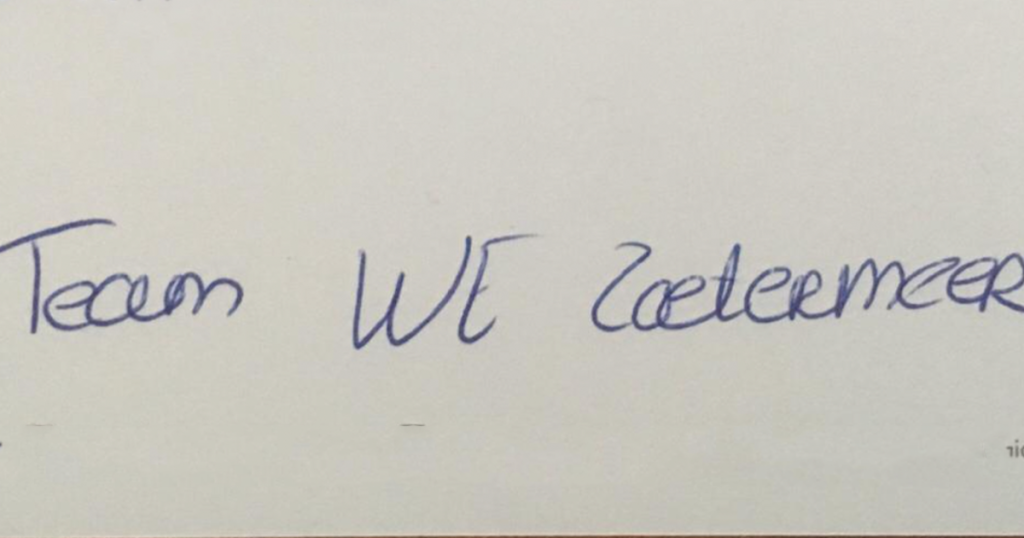 Team WE Zoetermeer